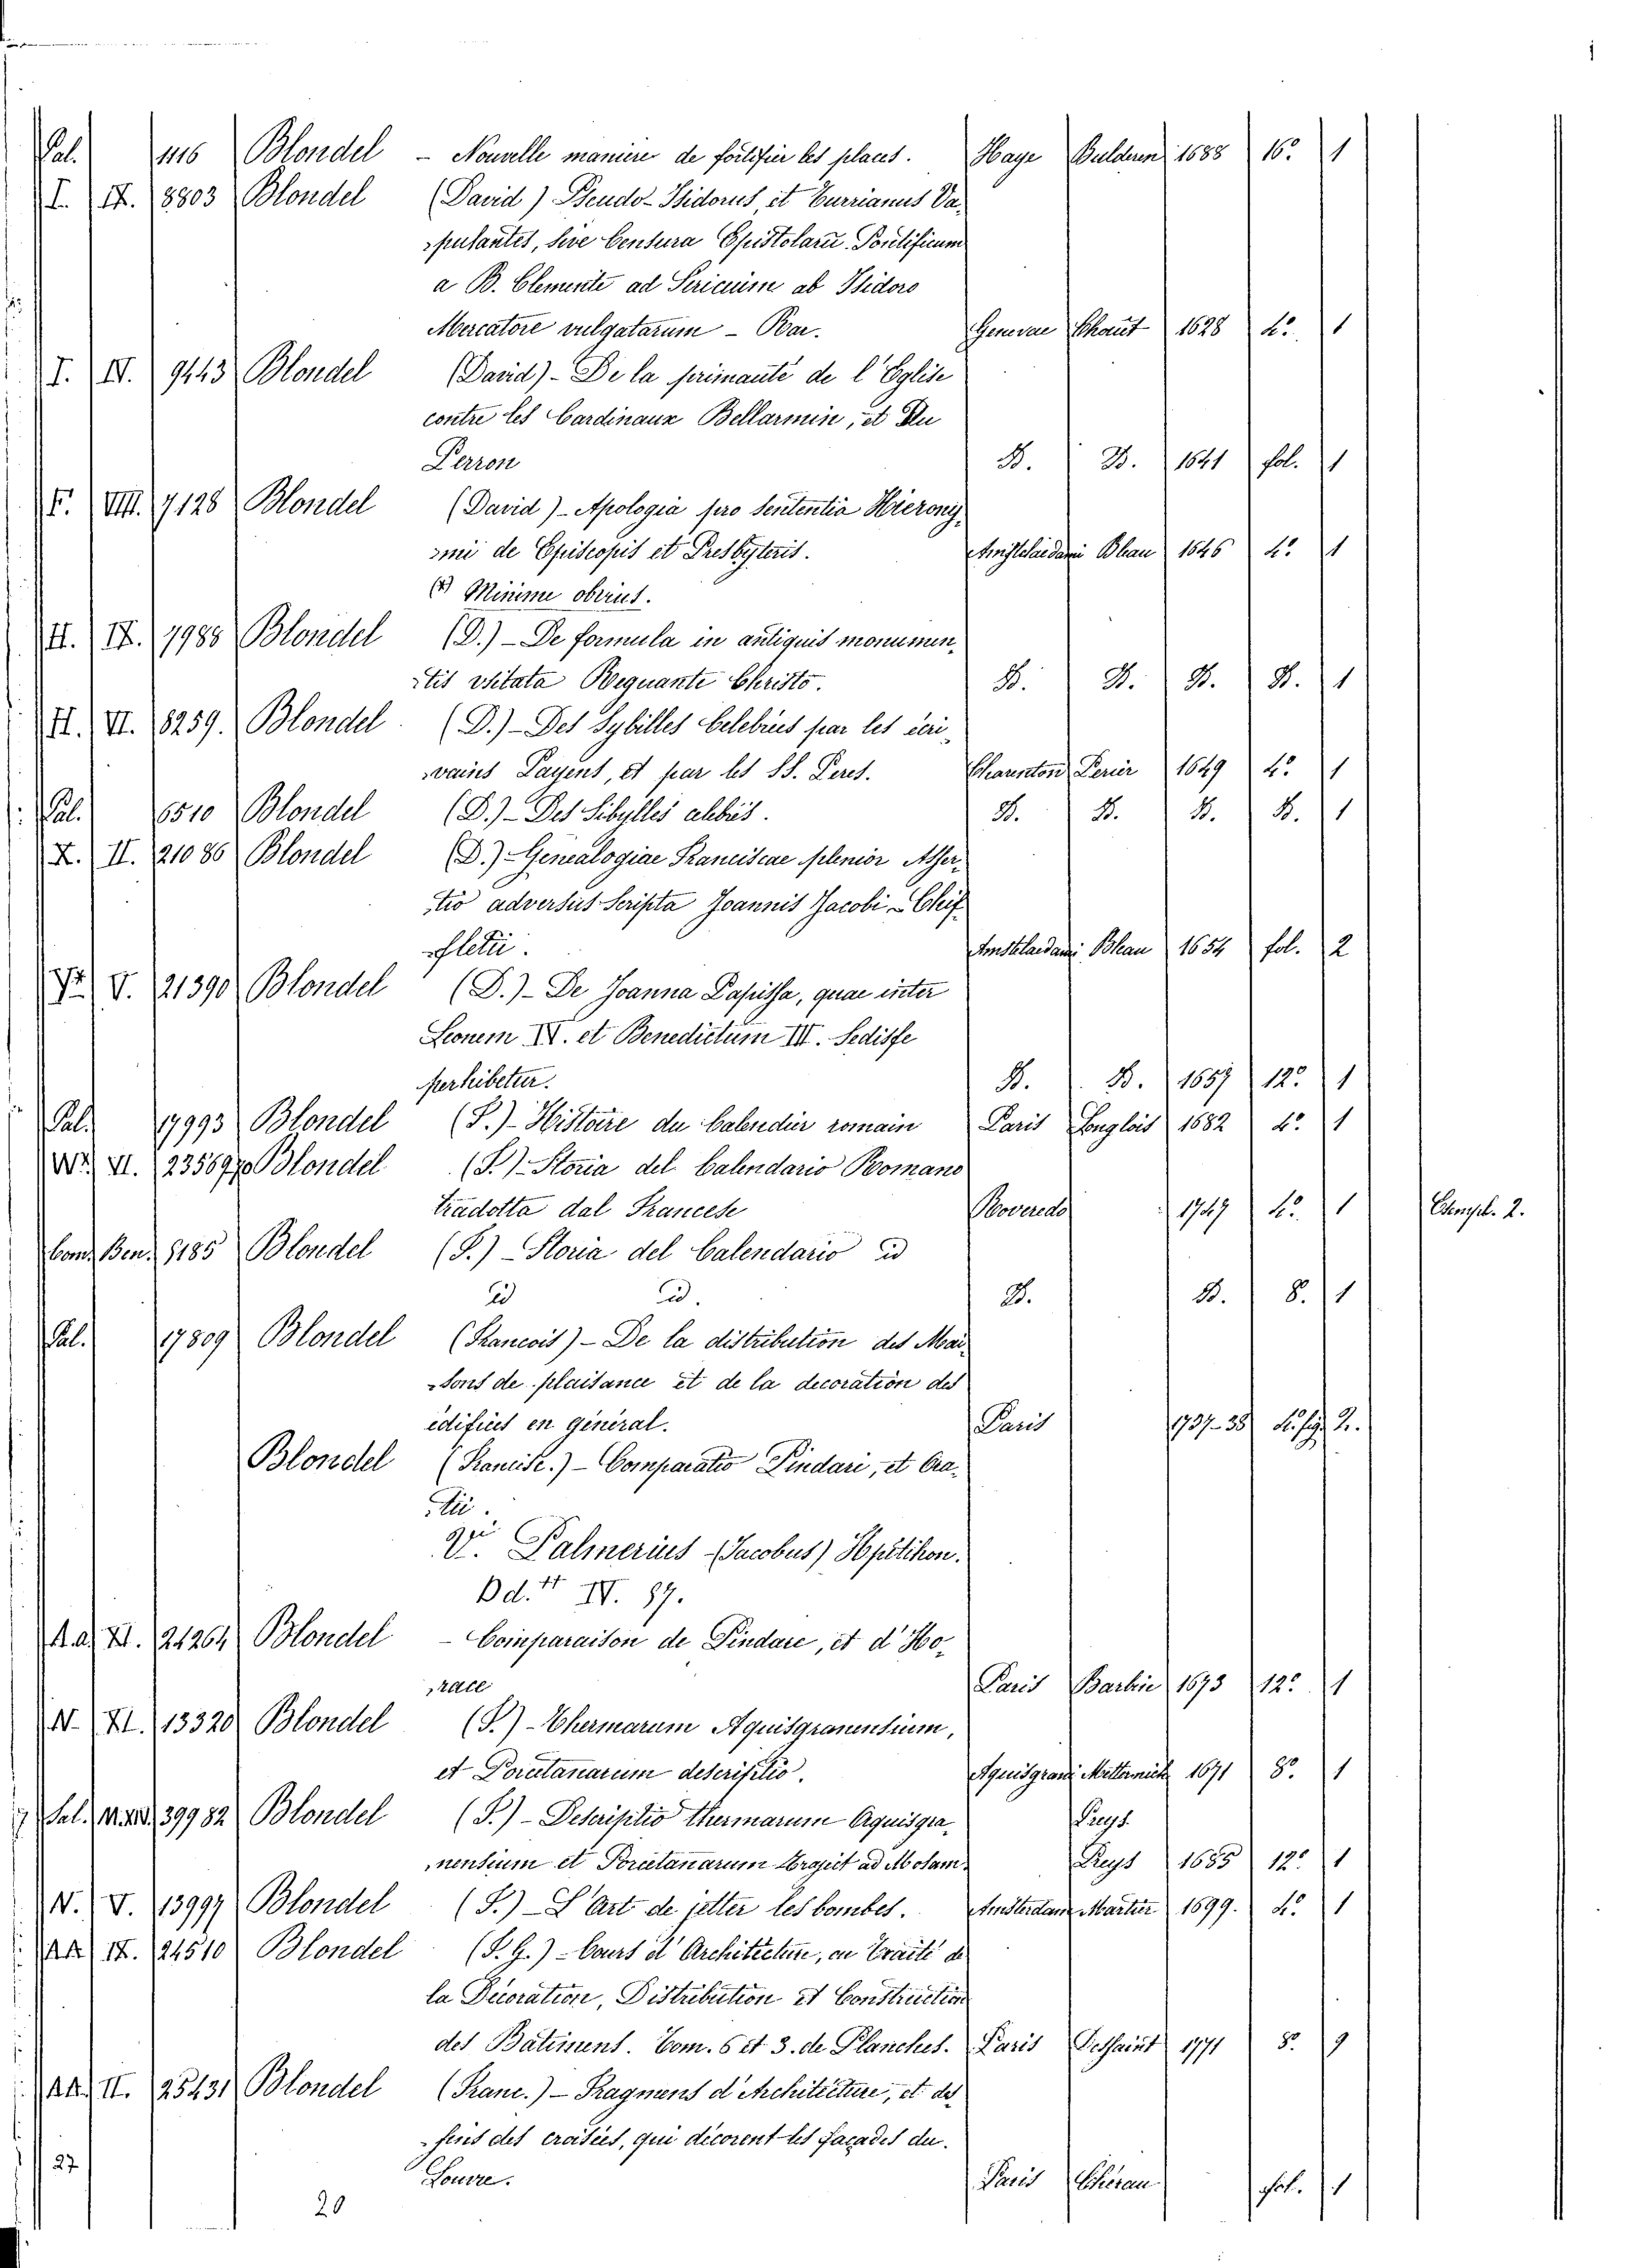 Pal. 1116 Blondel - Nouvelle maniere de fortifier les places. Haye Bulderen 1688 16.° 1
I. IX. 8803 Blondel (David) Pseudo-Isidorus, et Turrianus Va-
pulantes, sive Censura Epistolarū Pontificum
a B. Clemente ad Siricium ab Isidoro
Mercatore vulgatarum - Rar. Genevae Chouet 1628 4.° 1
I. IV. 9443 Blondel (David) - De la primauté de l'Eglise
contre les Cardinaux Bellarmin, et Du
Perron B. B. 1641 fol. 1
F. VIII. 7128 Blondel (David) - Apologia pro sententia Hierony-
mi de Episcopis et Presbyteris. Amstelaedami Blaeu 1646 4.° 1
(*) Minime obvius.
H. IX. 7988 Blondel (D.) - De formula in antiquis monumen-
tis vsitata Regnante Christo. B. B. B. B. 1
H. VI. 8259. Blondel (D.) - Des Sybilles Celebrées par les écri-
vains Payens, et par les SS. Peres. Charenton Perier 1649 4.° 1
Pal. 6510 Blondel (D.) - Des Sibylles celebrés. B. B. B. B. 1
X. II. 21086 Blondel (D.) - Genealogiae Franciscae plenior Asser-
tio adversus Scripta Joannis Jacobi Chif-
fletii. Amstelaedami Blaeu 1654 fol. 2
V. 21390 Blondel (D.) - De Joanna Papissa, quae inter
Leonem IV. et Benedictum III. Sedisse
perhibetur. B. B. 1657 12.° 1
Pal. 17993 Blondel (F.) - Histoire du Calendier romain Paris Longlois 1682 4.° 1
VI. 23569 Blondel (F.) - Storia del Calendario Romano
tradotta dal Francese Roveredo 1747 4.° 1 Exempl. 2.
Com. Ben. 9185 Blondel (F.) - Storia del Calendario id
id id. B. B. 8. 1
Pal. 17809 Blondel (Francois) - De la distribution des Mai-
sons de plaisance et de la decoration des
edifices en géneral. Paris 1737-38 4.° fig. 2.
Blondel (Francisc.) - Comparatio Pindari, et Ora-
tii.
V. Palmerius (Jacobus) Hpitikon.
Dd. IV. 87.
A.a. XI. 24264 Blondel - Comparaison de Pindare, et d'Ho-
race Paris Barbin 1673 12.° 1
N. XI. 13320 Blondel (F.) - Thermarum Aquisgranensium,
et Porcetanarum descriptio. Aquisgrani Metternich 1671 8.° 1
Sal. 39982 Blondel (F.) - Descriptio thermarum Aquisgra-
nensium et Porcetanarum Traject ad Mosam Preys 1685 12.° 1
N. V. 13997 Blondel (F.) - L'Art de jetter les bombes. Amsterdam Martier 1699. 4.° 1
AA. IX. 24510 Blondel (F. G.) - Cours d'Architecture, ou Traité de
la Décoration, Distribution et Construction
des Batiment. Tom. 6 et 3. de Planches. Paris Dessaint 1771 8.° 9
AA. II. 25431 Blondel (Franc.) - Fragmens d'Architecture, et des-
seins des croisées, qui décorent les façades du
Louvre. Paris Chérau fol. 1
27
20